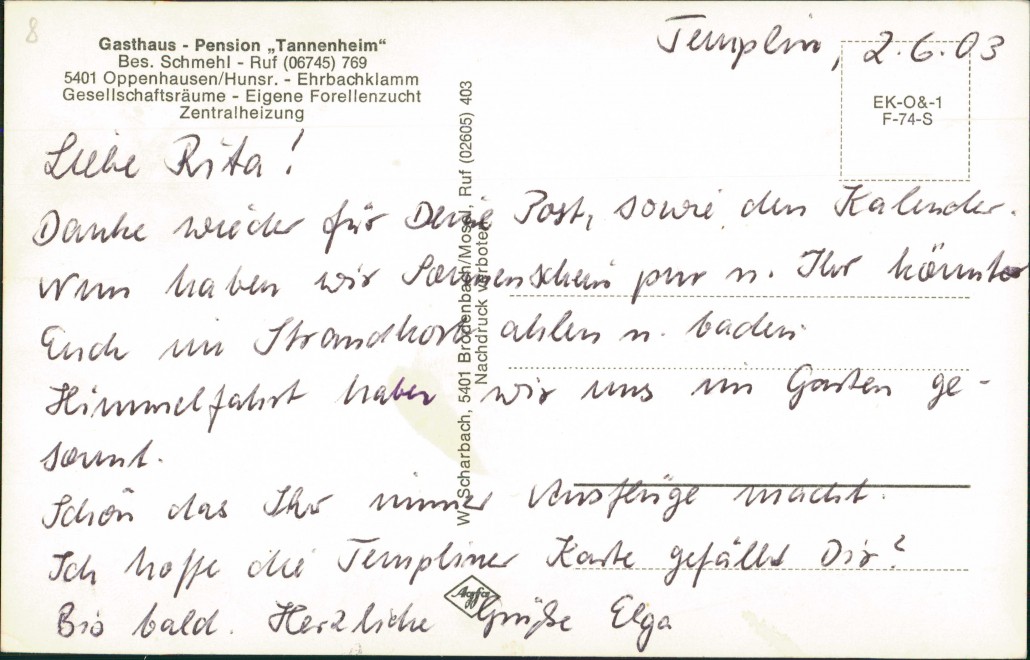 8
Gasthaus - Pension „Tannenheim“
Bes. Schmehl - Ruf (06745) 769
5401 Oppenhausen/Hunsr. - Ehrbachklamm
Gesellschaftsräume - Eigene Forellenzucht
Zentralheizung
Templin, 2.6.03
EK-O&-1
F-74-S
Liebe Rita!
Danke wieder für Deine Post, sowie den Kalender.
Nun haben wir Sonnenschein pur u. Ihr könntet
Euch im Strandkorb ahlen u. baden.
Himmelfahrt haben wir uns im Garten ge-
sonnt.
Schön das Ihr immer Ausflüge macht.
Ich hoffe die Templiner Karte gefällt Dir?
Bis bald. Herzliche Grüße Elga
W. Scharbach, 5401 Brodenbach/Mosel, Ruf (02605) 403
Nachdruck verboten
Agfa